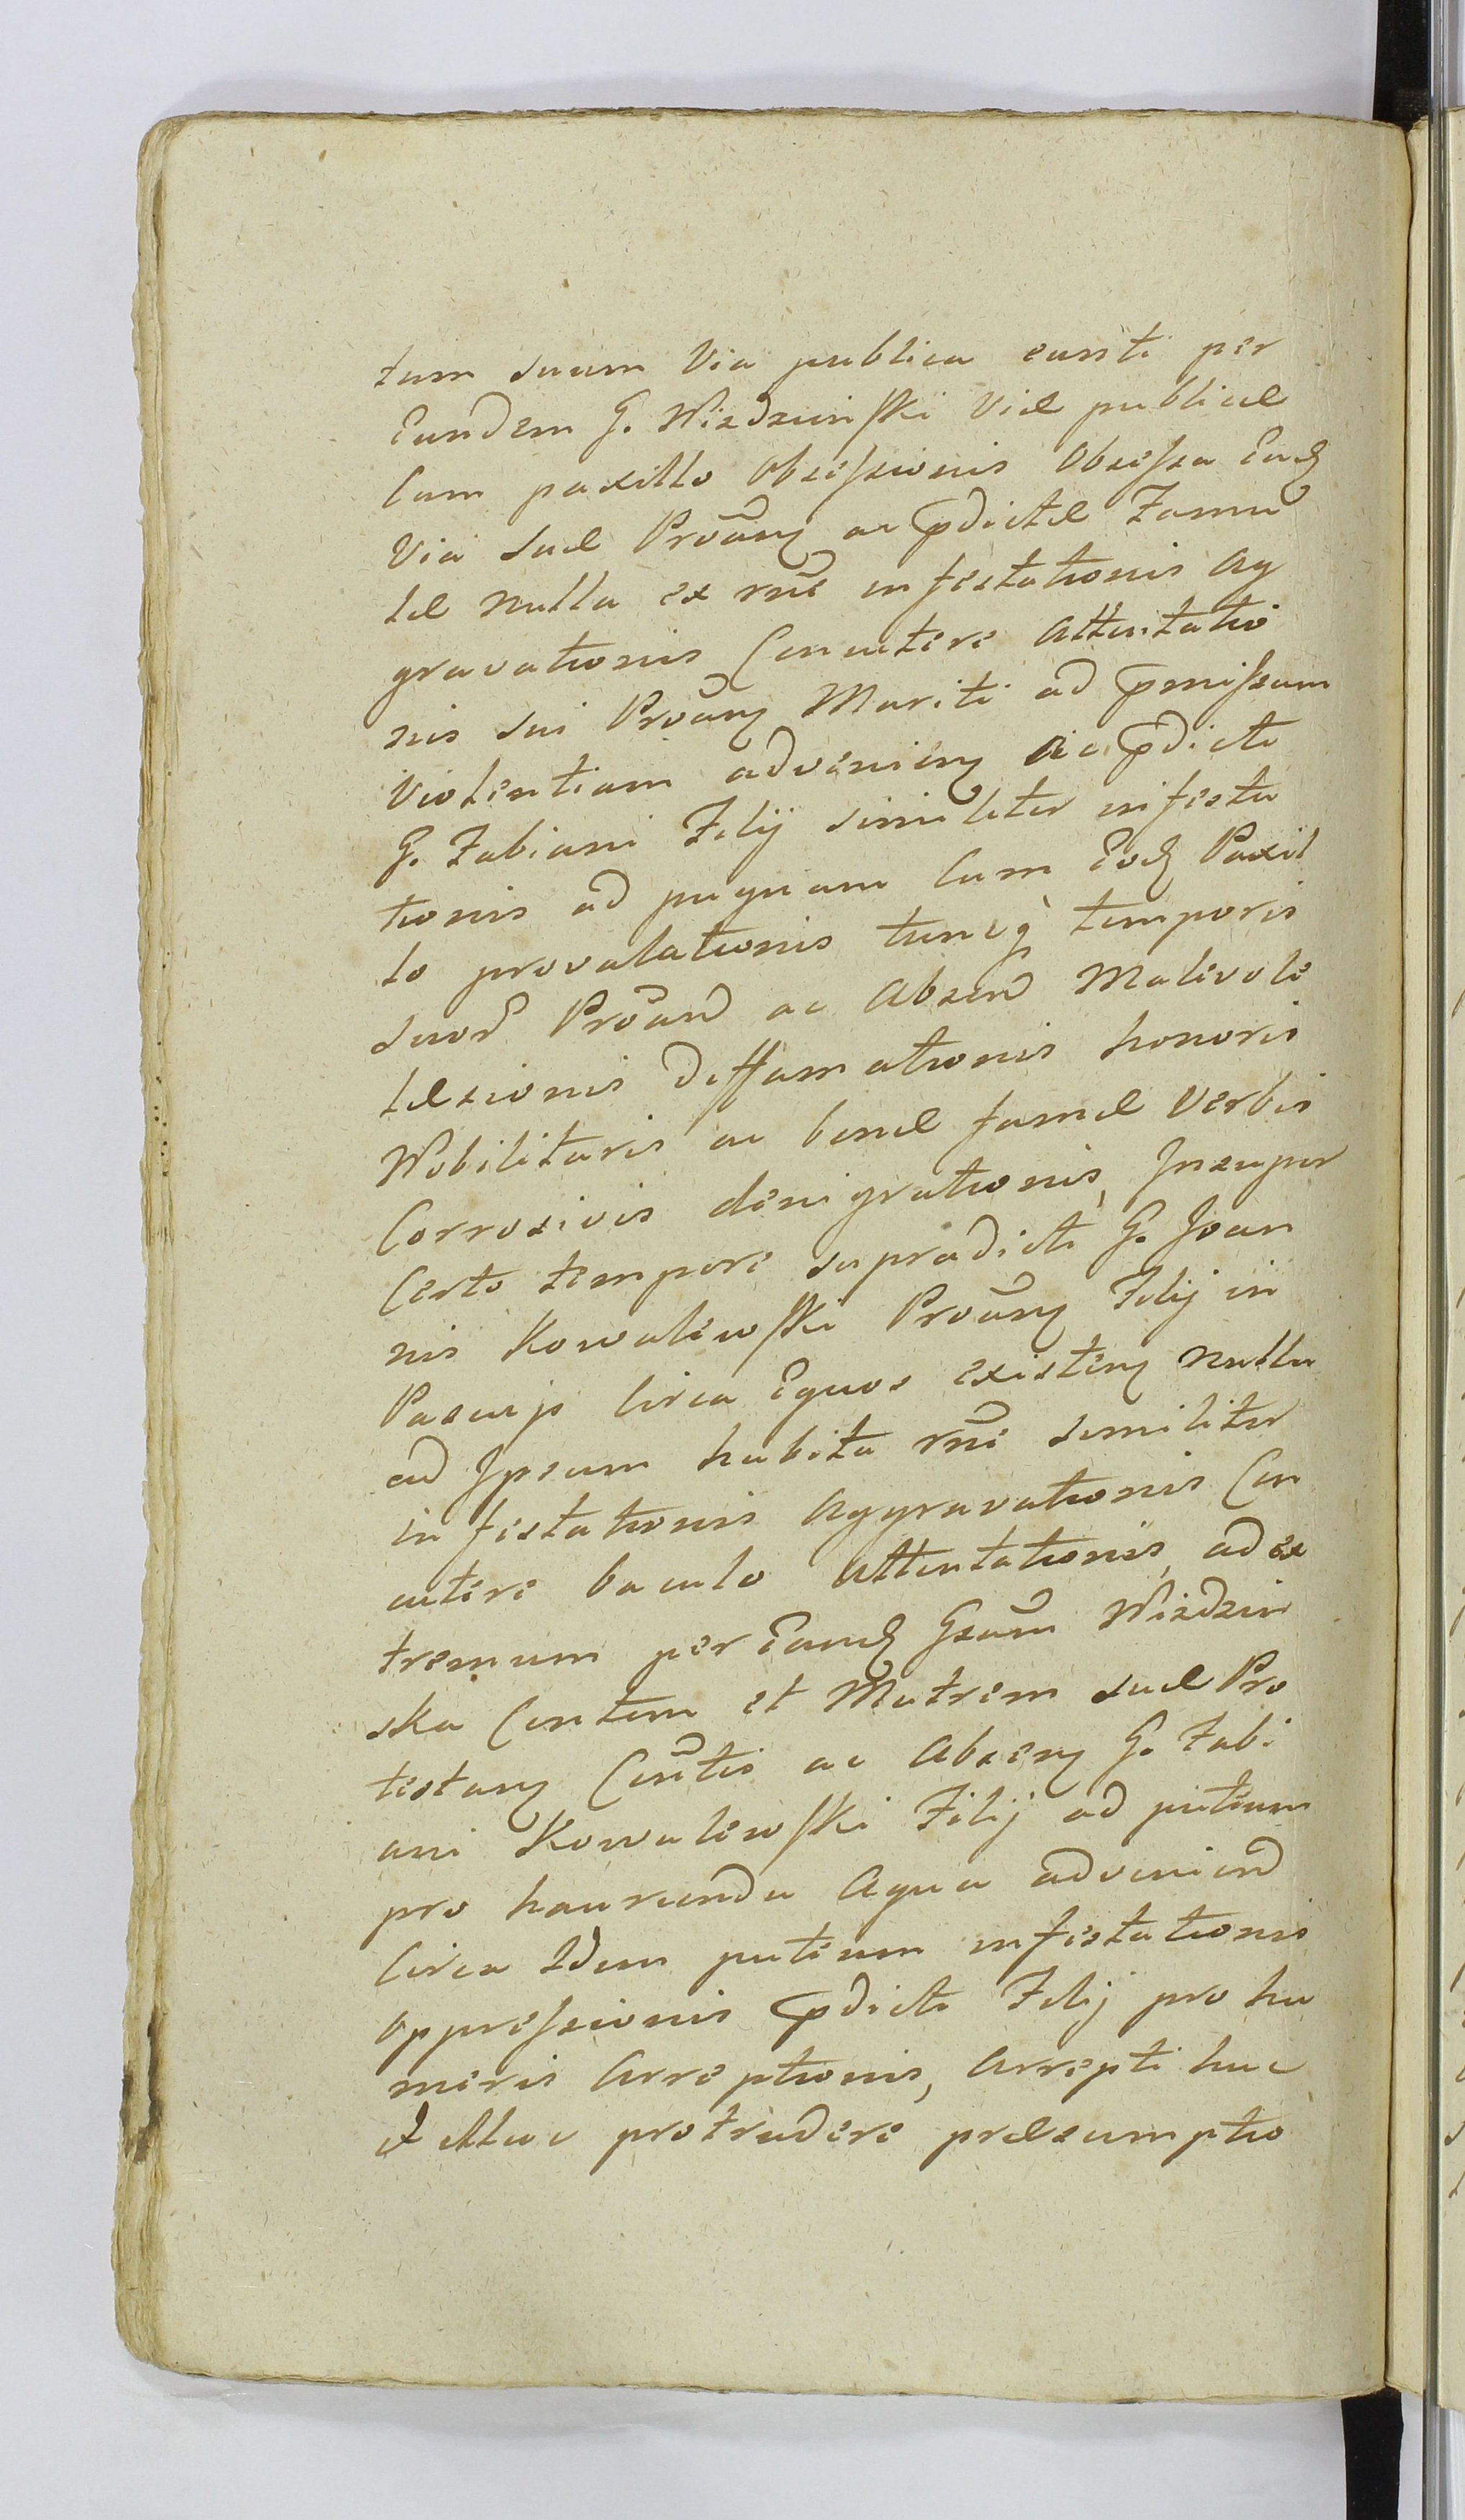 tum suum Via publica eunti per
Eundem G. Wiedzinski Viæ publicæ
Cum paxillo Obsessionis Obsessa Eadq
Via suæ Prõũnq ac p̃dictæ Famu
læ nulla ex rñe infestationis Ag
gravationis Concutere Attentatio
nis sui Prõũnq Mariti ad p̃missam
Violentiam advenienq Ac p̃dicti
G. Fabiani Filij similiter infesta
tionis ad pugnam Cum Eodq Paxil
lo provocationis tuncq̀ temporis
suor̃ Prõand ac Absend Malevole
læsionis diffamationis honoris
Nobilitaris ac bonæ famæ Verbis
Corrosivis denigrationis, Insuper
Certo tempore supradicti G. Joan
nis Kowalewski Prõũnq Filij in
Pascuis Circa Equos existenq nulla
ad Ipsum habita rñe similiter
infestationis Aggravationis Con
cutere baculo Attentationis, ad ex
tremum per Eandq Gsam̃ Wiedzin
ska Conten et Matrem suæ Pro
testanq Cõntis ac Absenq G. Fabi
ani Kowalewski Filij ad puteum
pro haurienda Aqua advenienã
Circa Idem puteum infestationis
Oppressionis p̃dicti Filij pro hu
meris Arreptionis, Arrepti huc
& illuc protrudere præsumptio